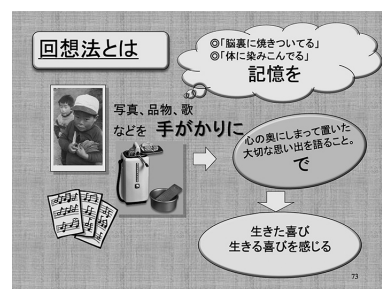 回想法とは
◎「脳裏に焼きついてる」
◎「体に染みこんでる」
記憶を
写真、品物、歌
などを 手がかりに
心の奥にしまって置いた
大切な思い出を語ること。
で
生きた喜び
生きる喜びを感じる
73